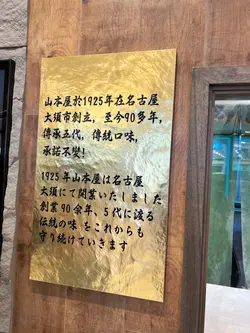 山本屋於1925年在名古屋
大須市創立，至今90多年，
傳承五代，傳統口味，
承諾不變！
1925年山本屋は名古屋
大須にて開業いたしました
創業90余年、5代に渡る
伝統の味をこれからも
守り続けていきます